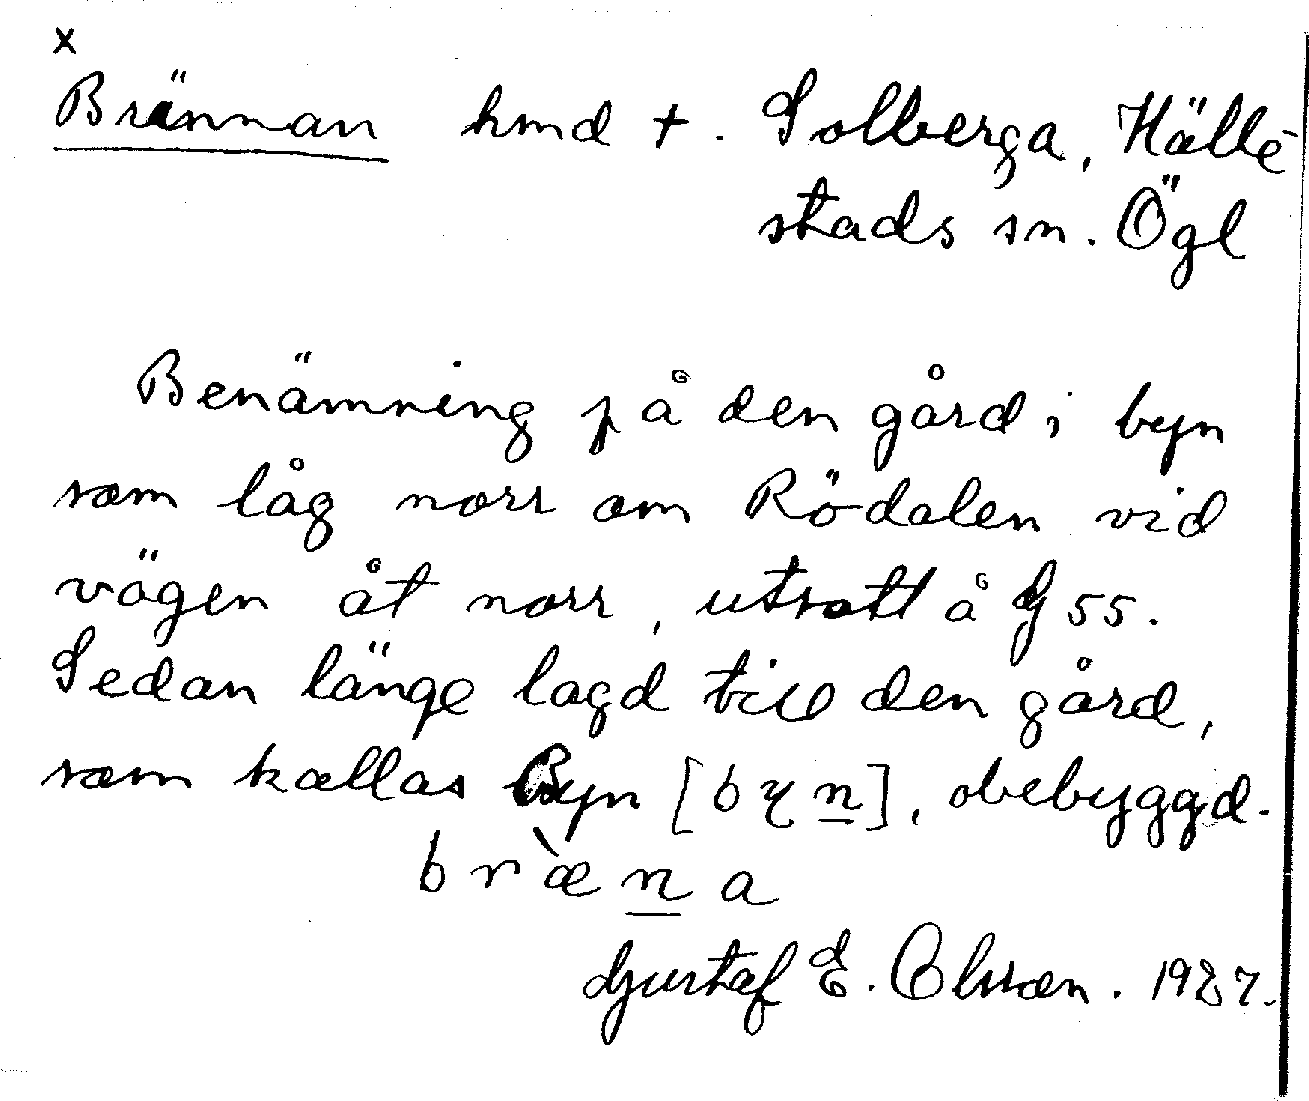 x
Brännan hmd +. Solberga, Hälle-
stads sn. Ögl
Benämning på den gård i byn
som låg norr om Rödalen vid
vägen åt norr, utsatt å G 55.
Sedan länge lagd till den gård,
som kallas Byn [byn], obebyggd.
bræ̀na
Gustaf E. Olsson. 1927.